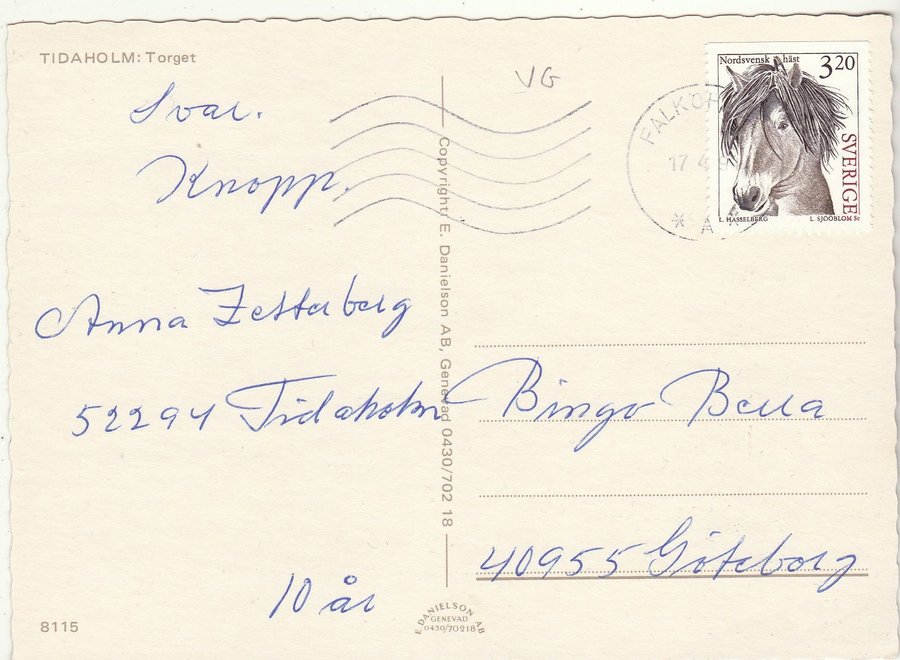 TIDAHOLM: Torget
Svar.
Knopp.
Anna Zetterberg
52294 Tidaholm
10 år
8115
Copyright: E. Danielson AB, Genevad 0430/702 18
E. DANIELSON AB
GENEVAD
0430/70218
VG
FALKÖP
17 4
* A *
Nordsvensk häst
3.20
SVERIGE
L. HASSELBERG
L. SJÖÖBLOM Sc
Bingo Bella
40955 Göteborg